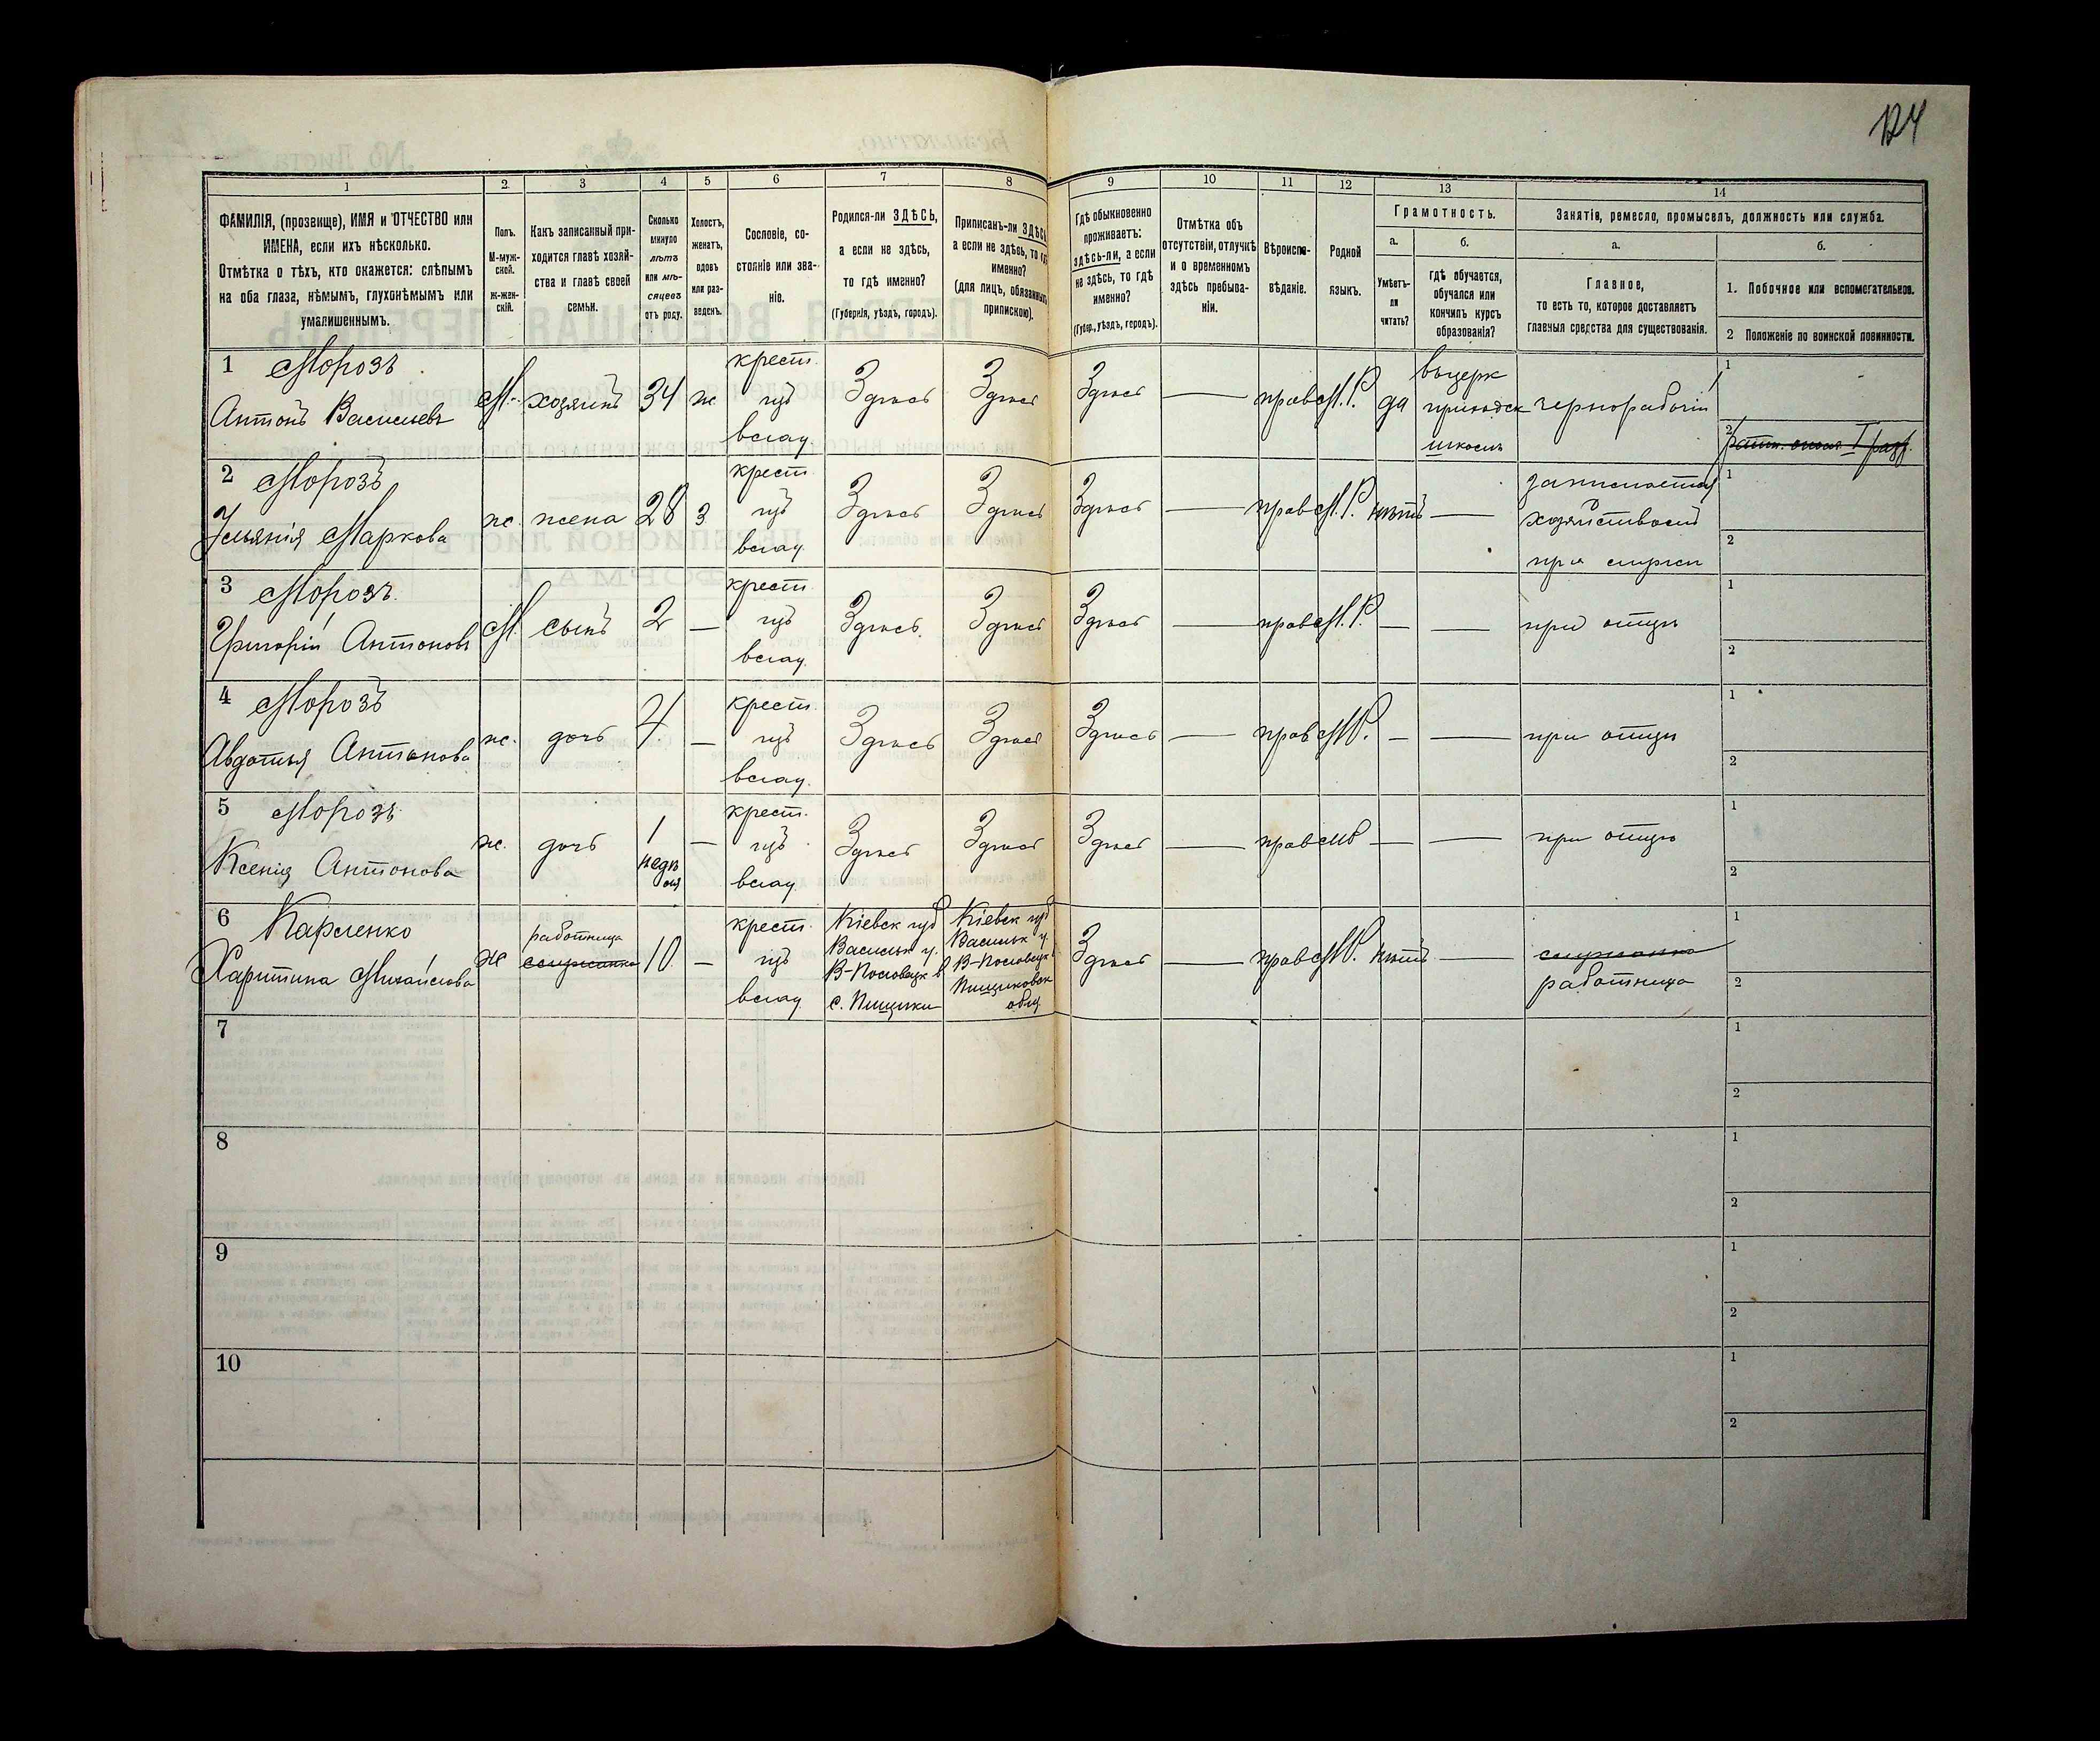 124
1
2
3
4
5
6
7
8
9
10
11
12
13
14
ФАМИЛІЯ, (прозвище), ИМЯ и ОТЧЕСТВО или
ИМЕНА, если ихъ нѣсколько.
Отмѣтка о тѣхъ, кто окажется: слѣпымъ
на оба глаза, нѣмымъ, глухонѣмымъ или
умалишеннымъ.
Полъ.
М-муж-
ской.
Ж-жен-
скій.
Какъ записанный при-
ходится главѣ хозяй-
ства и главѣ своей
семьи.
Сколько
минуло
лѣтъ
или мѣ-
сяцевъ
отъ роду.
Холостъ,
женатъ,
вдовъ
или раз-
веденъ.
Сословіе, со-
стояніе или зва-
ніе.
Родился-ли ЗДѢСЬ,
а если не здѣсь,
то гдѣ именно?
(Губернія, уѣздъ, городъ).
Приписанъ-ли ЗДѢСЬ
а если не здѣсь, то гдѣ
именно?
(для лицъ, обязанныхъ
припискою).
Гдѣ обыкновенно
проживаетъ:
здѣсь-ли, а если
не здѣсь, то гдѣ
именно?
(Губер., уѣздъ, городъ).
Отмѣтка объ
отсутствіи, отлучкѣ
и о временномъ
здѣсь пребыва-
ніи.
Вѣроиспо-
вѣданіе.
Родной
языкъ.
Грамотность.
а.
Умѣетъ-
ли
читать?
б.
гдѣ обучается,
обучался или
кончилъ курсъ
образованія?
Занятіе, ремесло, промыселъ, должность или служба.
а.
Главное,
то есть то, которое доставляетъ
главныя средства для существованія.
б.
1. Побочное или вспомогательное.
2 Положеніе по воинской повинности.
1 Морозъ
Антонъ Васильевъ
М. хозяинъ 34 ж
крест.
изъ
влад.
Здѣсь Здѣсь Здѣсь — прав М.Р. да
въ церк
приходск
школѣ
чернорабочій
1
2 ратн. опол I разр.
2 Морозъ
Ульянія Маркова
ж. жена 28 з
крест
изъ
влад.
Здѣсь Здѣсь Здѣсь — прав М.Р. нѣтъ —
занимается
хозяйствомъ
при мужѣ
1
2
3 Морозъ.
Григорій Антоновъ
М. сынъ 2 —
крест
изъ
влад.
Здѣсь. Здѣсь Здѣсь — прав М.Р. — — при отцѣ
1
2
4 Морозъ
Авдотья Антонова
ж. дочь 4 —
крест.
изъ
влад.
Здѣсь Здѣсь Здѣсь — прав МР. — — при отцѣ
1
2
5 Морозъ
Ксенія Антонова
ж. дочь 1
недѣ
ля
—
крест.
изъ
влад.
Здѣсь Здѣсь Здѣсь — прав МР — — при отцѣ
1
2
6 Карпенко
Харитина Михайлова
ж
работница
служанка
10 —
крест.
изъ
влад.
Кіевск губ
Васильк у.
В-Половецк в
с. Пищики
Кіевск губ
Васильк у.
В-Половецк
Пищиковск
общ
Здѣсь — прав МР. нѣтъ —
служанка
работница
1
2
7
1
2
8
1
2
9
1
2
10
1
2